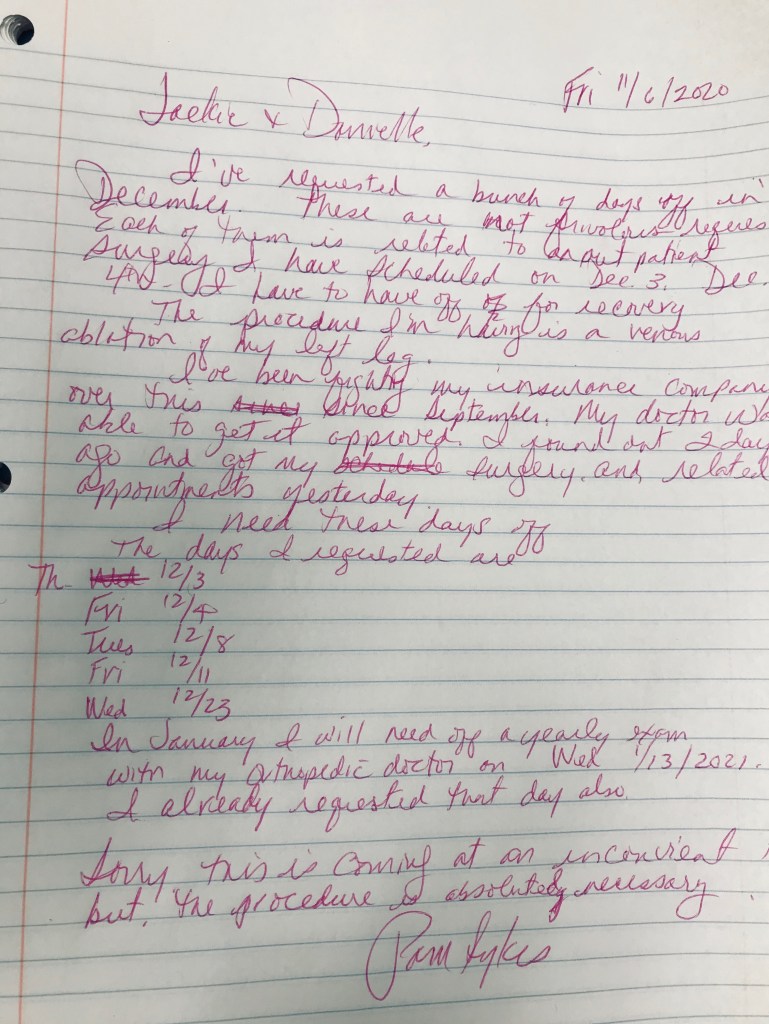 Fri 11/6/2020
Jackie & Danielle,
I've requested a bunch of days off in
December. These are not frivolous reques
Each of them is related to an out patient
surgery I have scheduled on Dec. 3. Dec.
4th - I have to have off for recovery
The procedure I'm having is a venous
ablation of my left leg.
I've been fighting my insurance compan
over this since September. My doctor wa
able to get it approved. I found out 2 day
ago and got my surgery and related
appointments yesterday.
I need these days off
The days I requested are
Th. 12/3
Fri 12/4
Tues 12/8
Fri 12/11
Wed 12/23
In January I will need off a yearly exam
with my orthopedic doctor on Wed 1/13/2021.
I already requested that day also.
Sorry this is coming at an inconvient
but, the procedure is absolutely necessary
Pam Sykes